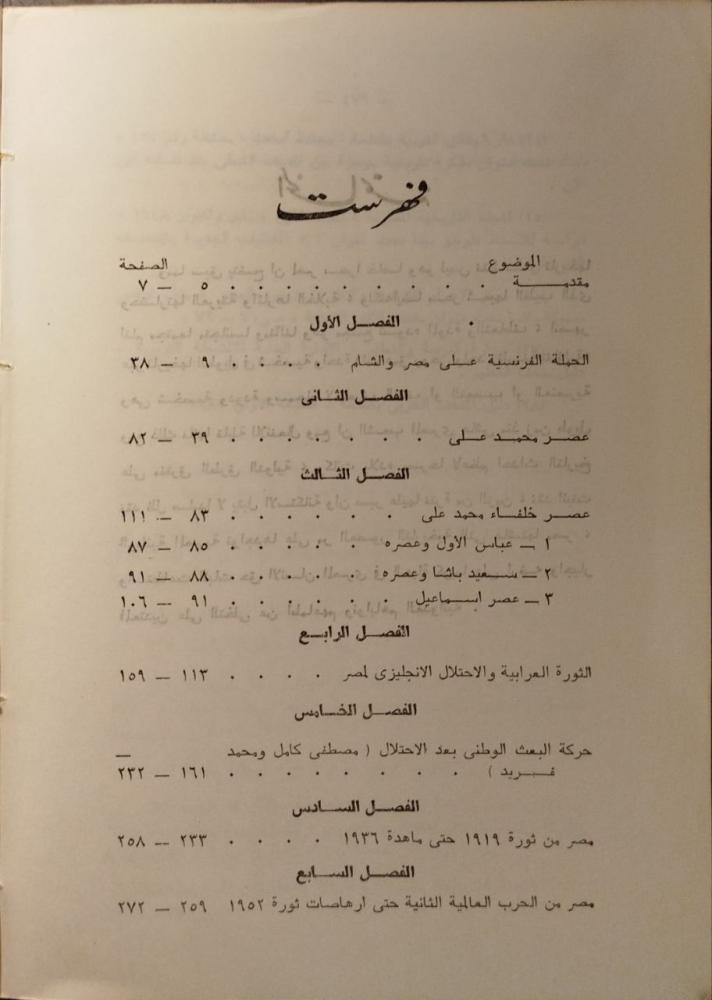 فهرست
الموضوع الصفحة
مقدمـــة . . . . . . . . . ٥ — ٧
الفصل الأول
الحملة الفرنسية على مصر والشام . . . . ٩ — ٣٨
الفصل الثانى
عصر محمد على . . . . . . . ٣٩ — ٨٢
الفصل الثالث
عصر خلفاء محمد على . . . . . . ٨٣ — ١١١
١ — عباس الأول وعصره . . . . . ٨٥ — ٨٧
٢ — سعيد باشا وعصره . . . . . ٨٨ — ٩١
٣ — عصر اسماعيل . . . . . . ٩١ — ١٠٦
الفصل الرابع
الثورة العرابية والاحتلال الانجليزى لمصر . . . . ١١٣ — ١٥٩
الفصل الخامس
حركة البعث الوطنى بعد الاحتلال ( مصطفى كامل ومحمد —
فريد ) . . . . . . . . ١٦١ — ٢٣٢
الفصل السادس
مصر من ثورة ١٩١٩ حتى ماهدة ١٩٣٦ . . . . ٢٣٣ — ٢٥٨
الفصل السابع
مصر من الحرب العالمية الثانية حتى ارهاصات ثورة ١٩٥٢ ٢٥٩ — ٢٧٢